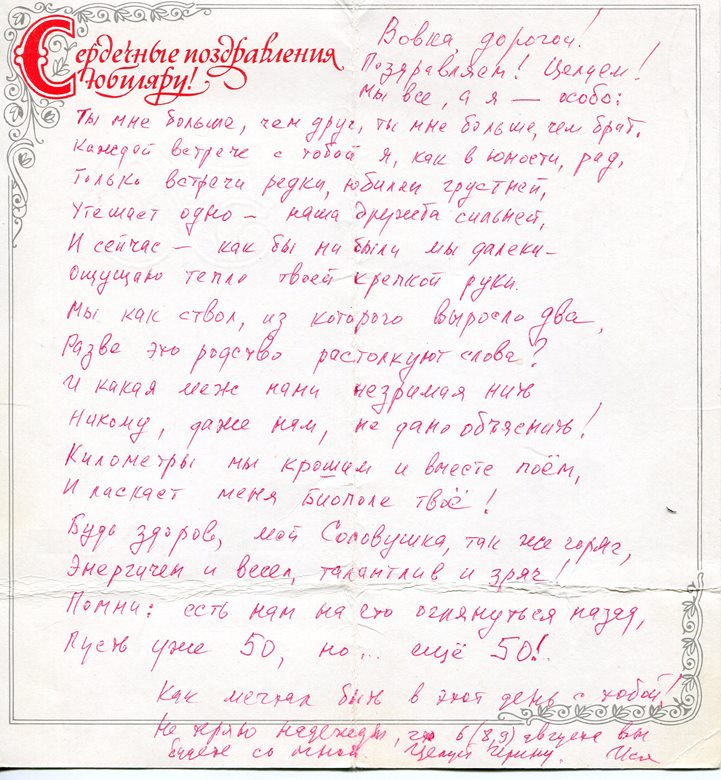 Сердечные поздравления
юбиляру!
Вовка, дорогой!
Поздравляем! Целуем!
Мы все, а я — особо:
Ты мне больше, чем друг, ты мне больше, чем брат,
Каждой встрече с тобой я, как в юности, рад,
Только встречи редки, юбилеи грустней,
Утешает одно — наша дружба сильней,
И сейчас — как бы ни были мы далеки —
Ощущаю тепло твоей крепкой руки.
Мы как ствол, из которого выросло два,
Разве это родство растолкуют слова?
И какая меж нами незримая нить
Никому, даже нам, не дано объяснить!
Километры мы крошим и вместе поём,
И ласкает меня Биополе твоё!
Будь здоров, мой Соловушка, так же горяч,
Энергичен и весел, талантлив и зряч!
Помни: есть нам на что оглянуться назад,
Пусть уже 50, но... ещё 50!..
Как мечтал быть в этот день с тобой!
Не теряю надежды, что 6 (8, 9) августа вы
будете со мной. Целуй Ирину. Ися